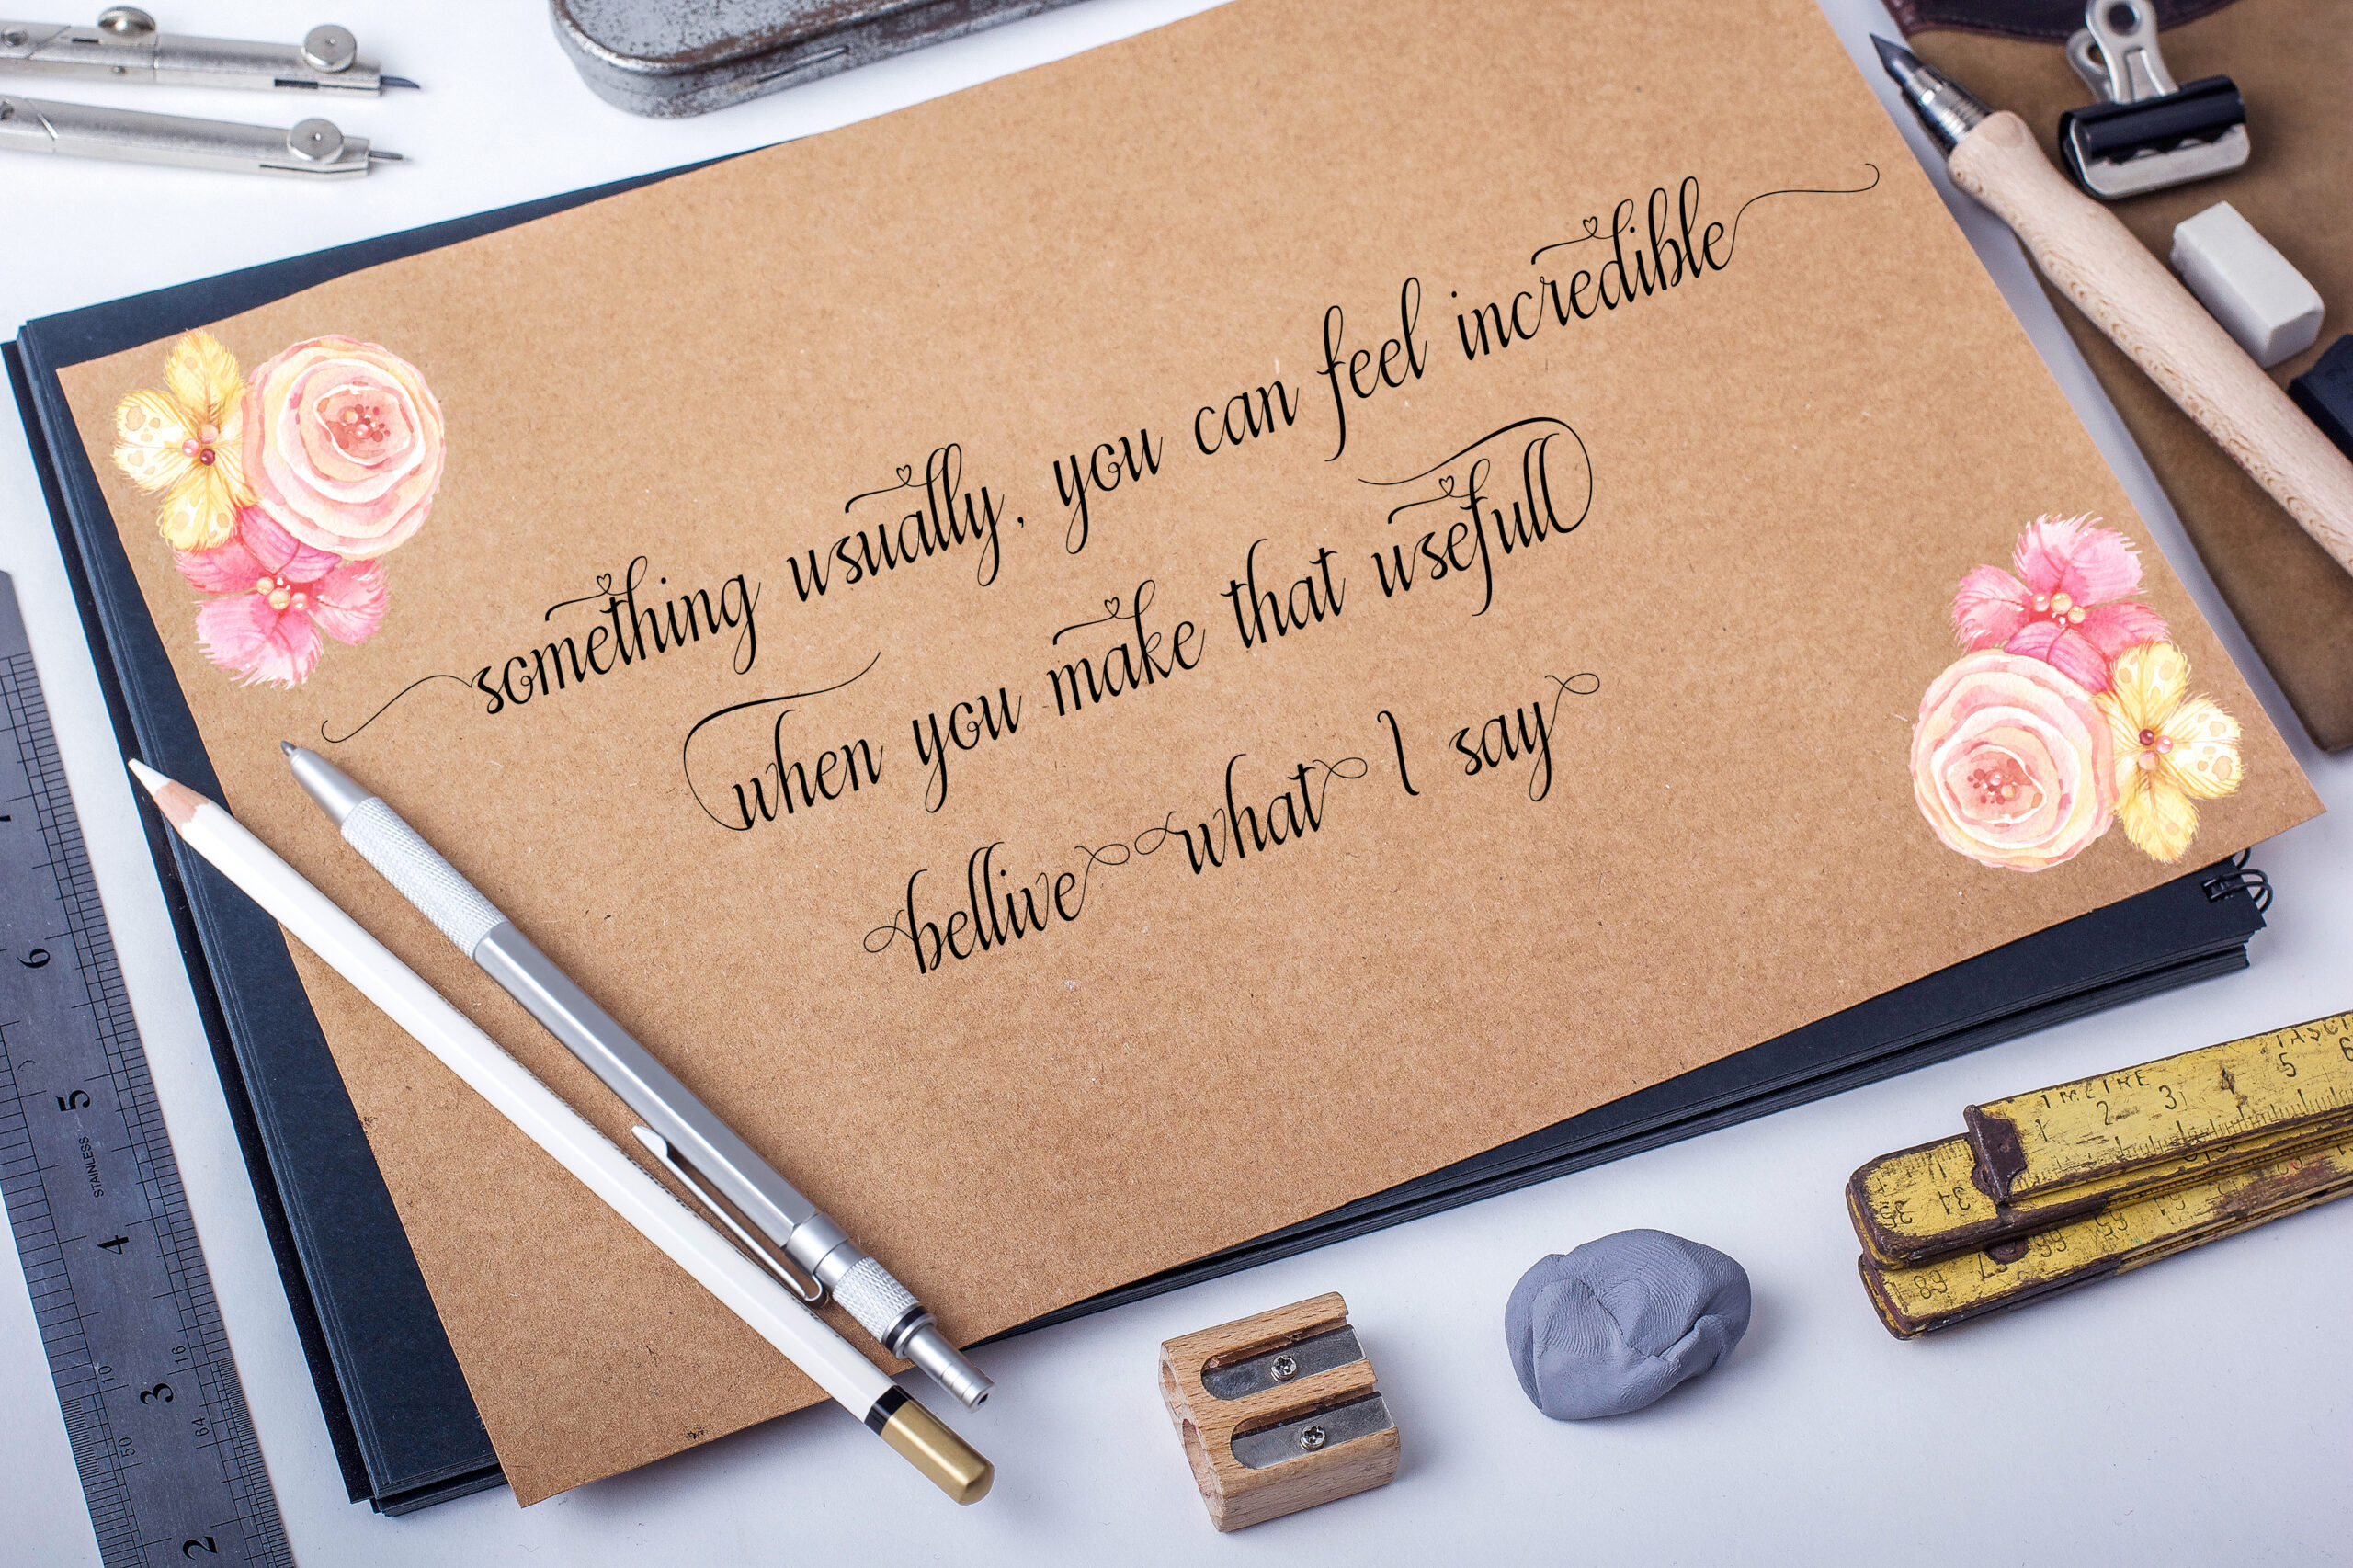 something usually, you can feel incredible
when you make that usefull
bellive what I say
6
5
STAINLESS
4
3
2
10
16
50
64
1 METRE
1 2 3 4 5 6
35 34
65 64
68 67 66